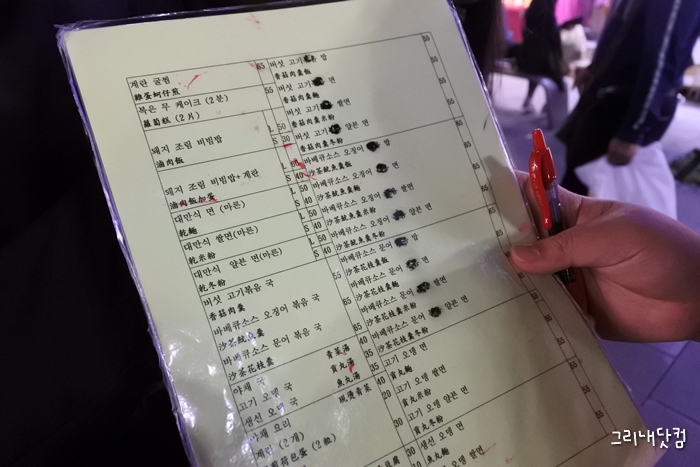 계란 굴점 65
雞蛋蚵仔煎
볶은 무 케이크 (2분) 55
蘿蔔糕 (2片)
돼지 조림 비빔밥 L 50
滷肉飯 S 30
돼지 조림 비빔밥+계란 L
滷肉飯加蛋 S 40
대만식 면 (마른) L 50
乾麵 S 40
대만식 쌀면(마른) L 50
乾米粉 S 40
대만식 얇은 면(마른) L 50
乾冬粉 S 40
버섯 고기볶음 국 55
香菇肉羹
바베큐소스 오징어 볶음 국 65
沙茶魷魚羹
바베큐소스 문어 볶음 국 65
沙茶花枝羹
야채 국 青菜湯 40
고기 오뎅 국 貢丸湯 35
생선 오뎅 국 魚丸湯 35
야채 요리 燙青菜 40
계란 (2개) 20
煎荷包蛋 (2粒)
버섯 고기 밥 55
香菇肉羹飯
버섯 고기 면 55
香菇肉羹麵
버섯 고기 쌀면 55
香菇肉羹米粉
버섯 고기 얇은 면 55
香菇肉羹冬粉
바베큐소스 오징어 밥 65
沙茶魷魚羹飯
바베큐소스 오징어 면 65
沙茶魷魚羹麵
바베큐소스 오징어 쌀면 65
沙茶魷魚羹米粉
바베큐소스 오징어 얇은 면 65
沙茶魷魚羹冬粉
바베큐소스 문어 밥 65
沙茶花枝羹飯
바베큐소스 문어 면 65
沙茶花枝羹麵
바베큐소스 문어 쌀면 65
沙茶花枝羹米粉
바베큐소스 문어 얇은 면 65
沙茶花枝羹冬粉
고기 오뎅 면 55
貢丸麵
고기 오뎅 쌀면
貢丸米粉
고기 오뎅 얇은 면
貢丸冬粉
생선 오뎅 면
魚丸麵
그리내닷컴